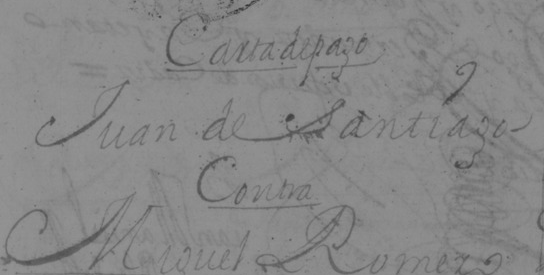 Cartadepago
Juan de Santiago
Contra
Miguel Romero